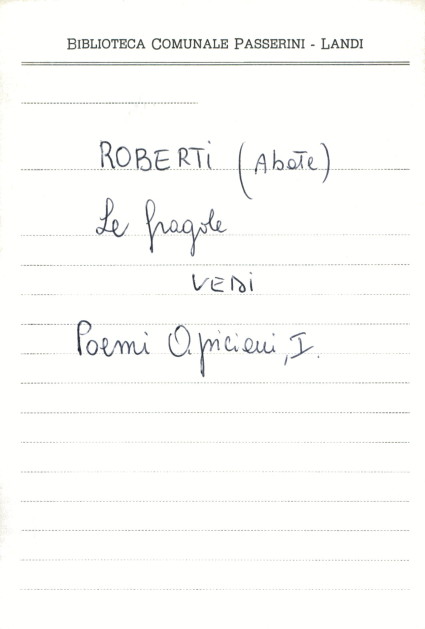 BIBLIOTECA COMUNALE PASSERINI - LANDI
ROBERTI (Abate)
Le fragole
VEDI
Poemi Apiciani, I.